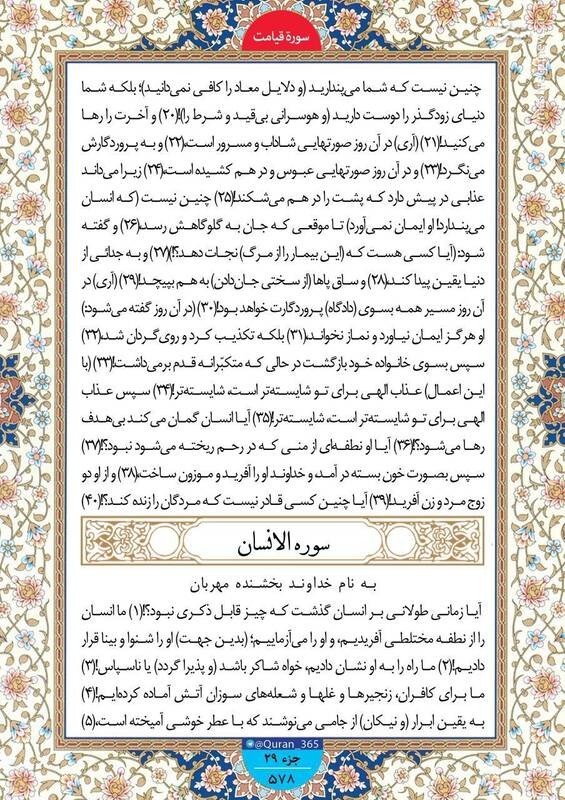 سورة قیامت
چنین نیست که شما می‌پندارید (و دلایل معاد را کافی نمی‌دانید)؛ بلکه شما
دنیای زودگذر را دوست دارید (و هوسرانی بی‌قید و شرط را)!(۲۰) و آخرت را رها
می‌کنید!(۲۱) (آری) در آن روز صورتهایی شاداب و مسرور است،(۲۲) و به پروردگارش
می‌نگرد!(۲۳) و در آن روز صورتهایی عبوس و در هم کشیده است،(۲۴) زیرا می‌داند
عذابی در پیش دارد که پشت را در هم می‌شکند!(۲۵) چنین نیست (که انسان
می‌پندارد! او ایمان نمی‌آورد) تا موقعی که جان به گلوگاهش رسد،(۲۶) و گفته
شود: (آیا کسی هست که (این بیمار را از مرگ) نجات دهد؟!)(۲۷) و به جدائی از
دنیا یقین پیدا کند،(۲۸) و ساق پاها (از سختی جان‌دادن) به هم بپیچد!(۲۹) (آری) در
آن روز مسیر همه بسوی (دادگاه) پروردگارت خواهد بود!(۳۰) (در آن روز گفته می‌شود:)
او هرگز ایمان نیاورد و نماز نخواند،(۳۱) بلکه تکذیب کرد و روی‌گردان شد،(۳۲)
سپس بسوی خانواده خود بازگشت در حالی که متکبّرانه قدم برمی‌داشت!(۳۳) (با
این اعمال) عذاب الهی برای تو شایسته‌تر است، شایسته‌تر!(۳۴) سپس عذاب
الهی برای تو شایسته‌تر است، شایسته‌تر!(۳۵) آیا انسان گمان می‌کند بی‌هدف
رها می‌شود؟!(۳۶) آیا او نطفه‌ای از منی که در رحم ریخته می‌شود نبود؟!(۳۷)
سپس بصورت خون بسته در آمد و خداوند او را آفرید و موزون ساخت،(۳۸) و از او دو
زوج مرد و زن آفرید!(۳۹) آیا چنین کسی قادر نیست که مردگان را زنده کند؟!(۴۰)
سوره الانسان
به نام خداوند بخشنده مهربان
آیا زمانی طولانی بر انسان گذشت که چیز قابل ذکری نبود؟!(۱) ما انسان
را از نطفه مختلطی آفریدیم، و او را می‌آزماییم؛ (بدین جهت) او را شنوا و بینا قرار
دادیم!(۲) ما راه را به او نشان دادیم، خواه شاکر باشد (و پذیرا گردد) یا ناسپاس!(۳)
ما برای کافران، زنجیرها و غلها و شعله‌های سوزان آتش آماده کرده‌ایم!(۴)
به یقین ابرار (و نیکان) از جامی می‌نوشند که با عطر خوشی آمیخته است،(۵)
@Quran_365
جزء ۲۹
۵۷۸